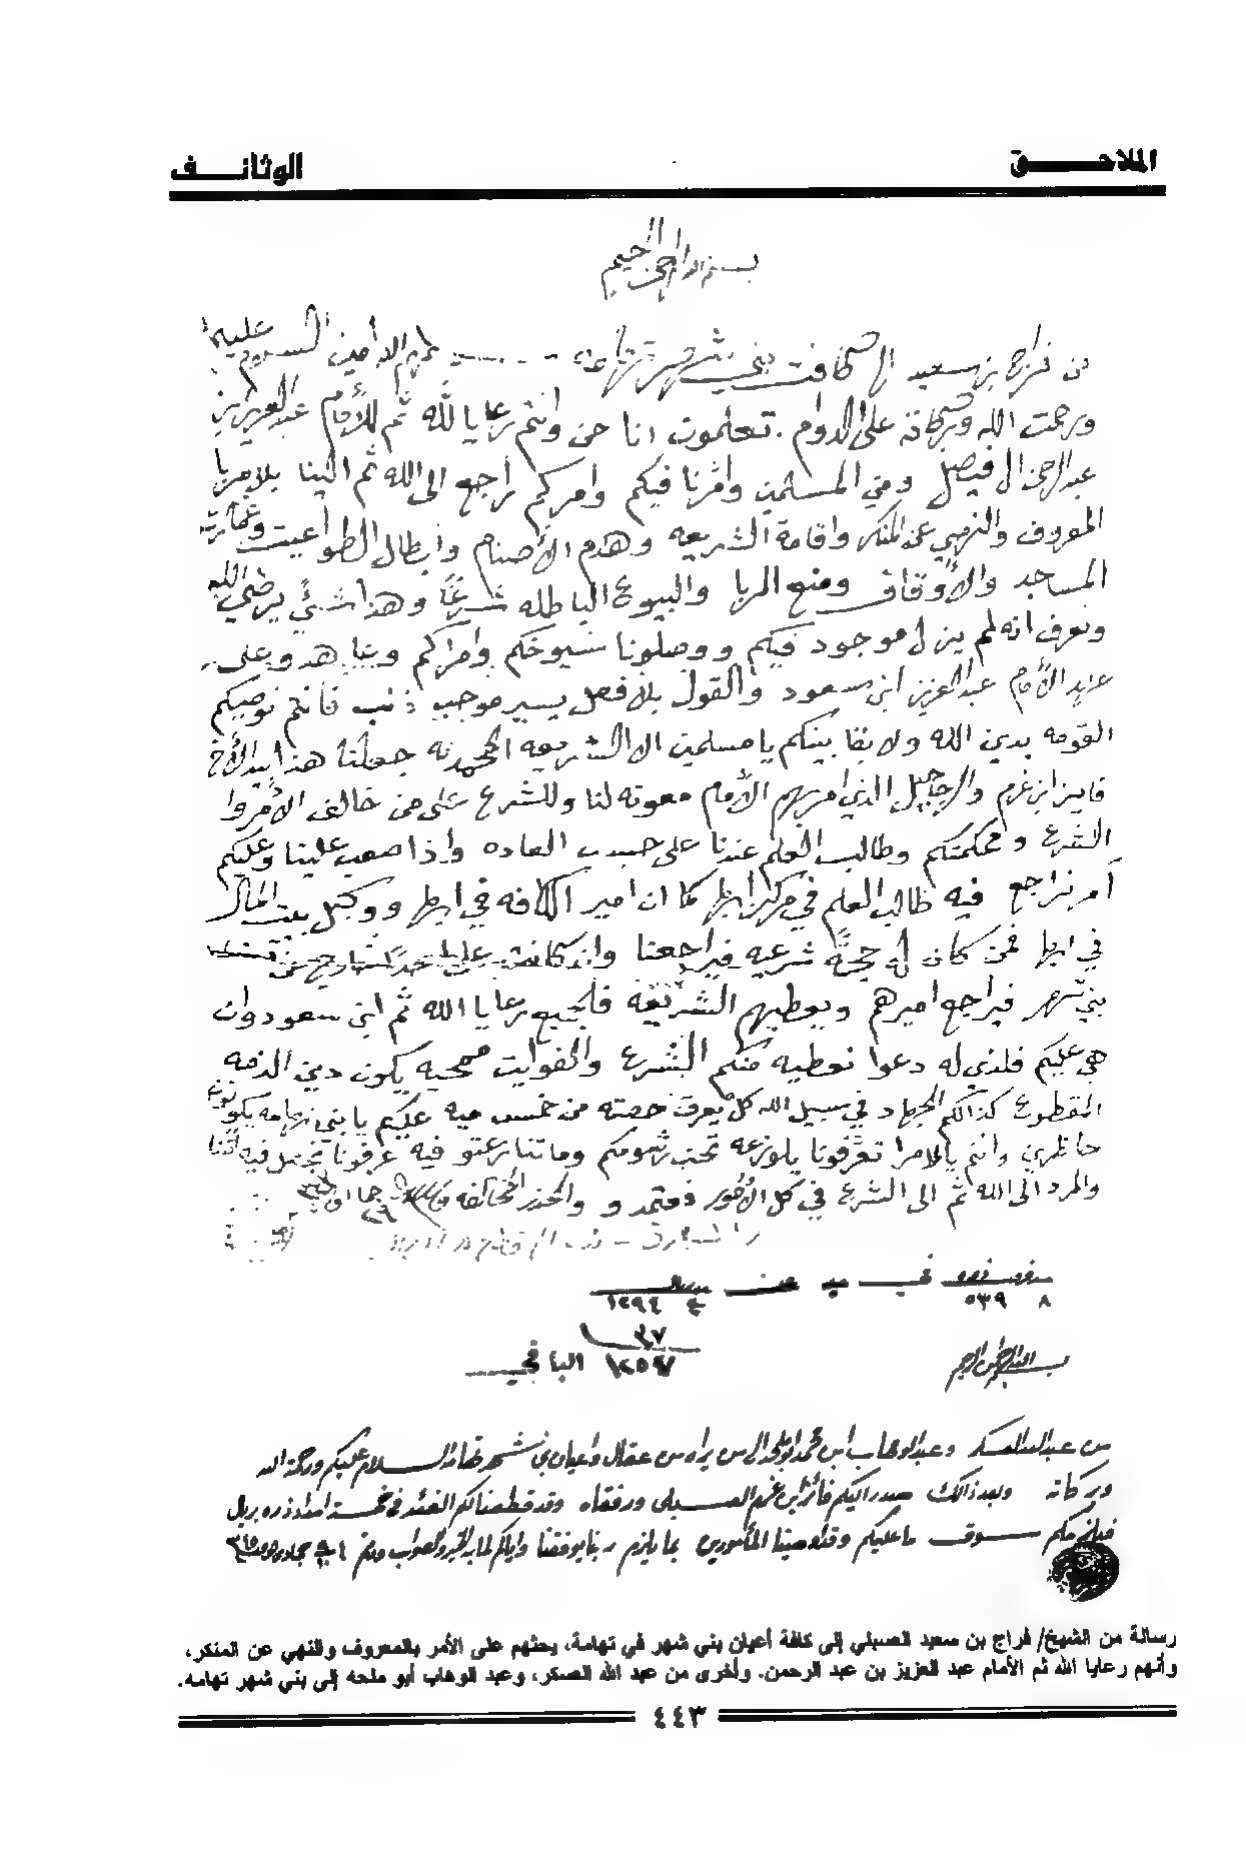 الملاحق
الوثائف
بسم الله الرحمن الرحيم
من فراج بن سعيد الى كافت بني شهر تهامه السلام عليكم
ورحمت الله وبركاته على الدوام . تعلمون انا حن وانتم رعايا لله ثم للأمام عبد العزيز ابن
عبد الرحمن ال فيصل ومن المسلمين وامرنا فيكم وامركم راجع الى الله ثم الينا بلامر با
المعروف والنهي عن المنكر واقامة الشريعه وهدم الأصنام وابطال الطواغيت وعمارت
المساجد والأوقاف ومنع الربا والبيوع الباطله شرعًا وهذا شيئ يرضي الله
ونعرف انه لم يزل موجود فيكم ووصلونا شيوخكم وامراكم
الأمام عبد العزيز ابن سعود والقول بلا فعل يسير موجب ذنب فأنتم نوصيكم
القومه بدين الله ولا بقا بينكم يا مسلمين الا الشريعه المحمديه جعلنا هذا بيد الأخ
فايز ابن غرم والرجاجيل الذي امر بهم الأمام معونه لنا وللشرع على من خالف الأمر وا
الشرع ومحكمتكم وطالب العلم عندنا على حسب العاده واذا صعب علينا وعليكم
أمر نراجع فيه طالب العلم في مركز ابها كما ان امير الكافه في ابها ووكيل بيت المال
في ابها فمن كان له حجةً شرعيه فيراجعنا وان كانت على احد خارج عن
بني شهر فيراجع اميرهم ويعطيهم الشريعه فلجميع رعايا الله ثم ابن سعود وان
هي عليكم فلذي له دعوا نعطيه منكم الشرع والفوايت ممحيه يكون دين الذمه
المقطوع كذالكم الجهاد في سبيل الله كل يعرف حصته من خمس ميه عليكم يا بني تهامه يكونون
حاظرين وانتم يالامرا تعرفونا بلوزعه تحت شهومكم وما تنازعتو فيه عرفونا
والمرد الى الله ثم الى الشرع في كل الأمور معتمد و والحذر المخالفه والسلام
٨ ٥٣٩ ٤ ١٢٩٤
٣٧
١٢٥٧ الباقي
بسم الله الرحمن الرحيم
من عبد الله العسكر وعبد الوهاب ابن محمد ابو ملحه الى من يراه من عقال واعيان بني شهر تهامه السلام عليكم ورحمة الله
وبركاته وبعد ذالك صدر اليكم فائز ابن غرم العسبلي ورفقاه وقد قطعنا لكم الغند في خمسة امداد ذره بريال
فيلزمكم سوق ما عليكم وقد وصينا المأمورين بما يلزم ربنا يوفقنا واياكم لما به الخير والصواب ودمتم
رسالة من الشيخ/ فراج بن سعيد العسبلي إلى كافة أعيان بني شهر في تهامة، يحثهم على الأمر بالمعروف والنهي عن المنكر،
وأنهم رعايا الله ثم الأمام عبد العزيز بن عبد الرحمن. وأخرى من عبد الله العسكر، وعبد الوهاب أبو ملحه إلى بني شهر تهامه.
٤٤٣